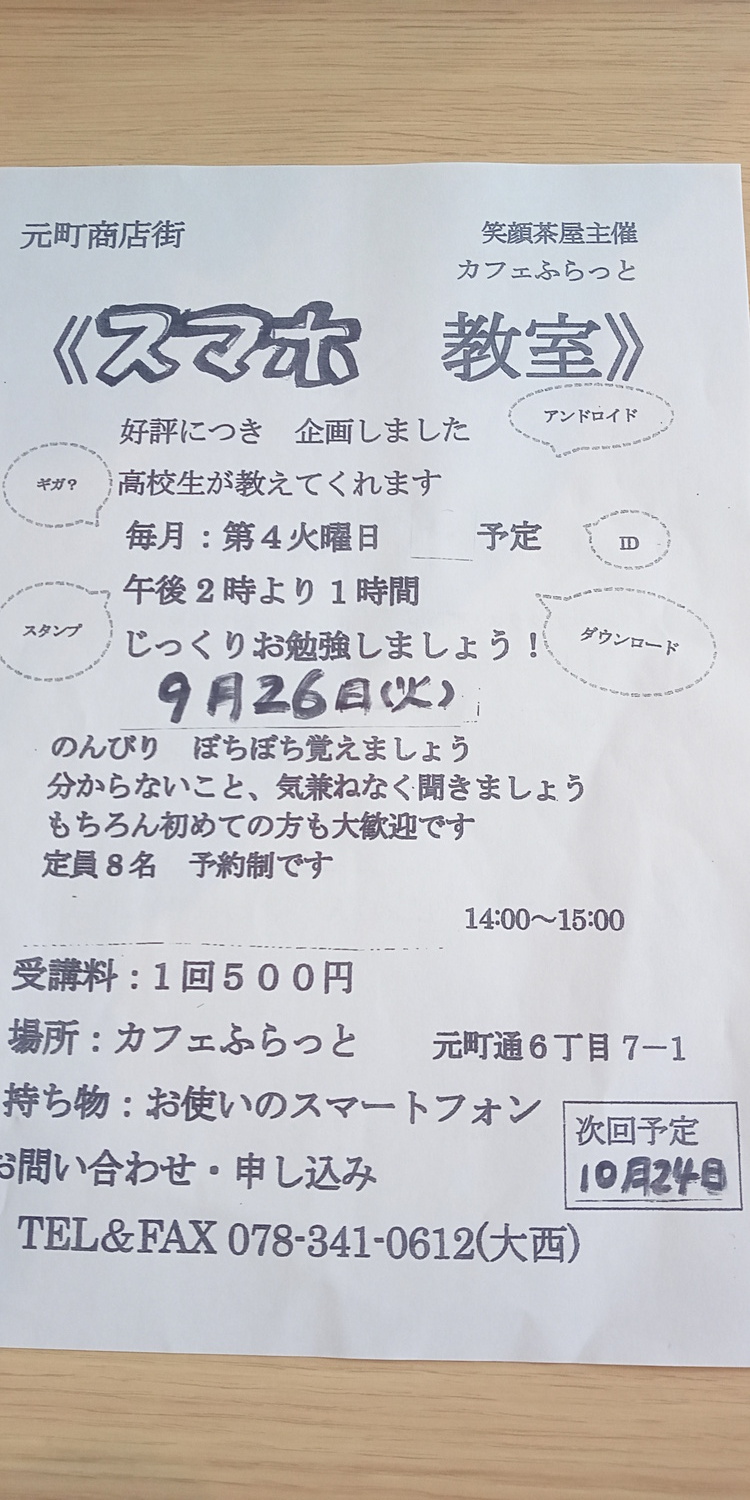 元町商店街
笑顔茶屋主催
カフェふらっと
《スマホ 教室》
アンドロイド
好評につき 企画しました
ギガ?
高校生が教えてくれます
毎月:第4火曜日 予定
ID
午後2時より1時間
スタンプ
じっくりお勉強しましょう!
ダウンロード
9月26日(火)
のんびり ぼちぼち覚えましょう
分からないこと、気兼ねなく聞きましょう
もちろん初めての方も大歓迎です
定員8名 予約制です
14:00~15:00
受講料:1回500円
場所:カフェふらっと 元町通6丁目7ー1
持ち物:お使いのスマートフォン
次回予定
10月24日
お問い合わせ・申し込み
TEL&FAX 078-341-0612(大西)